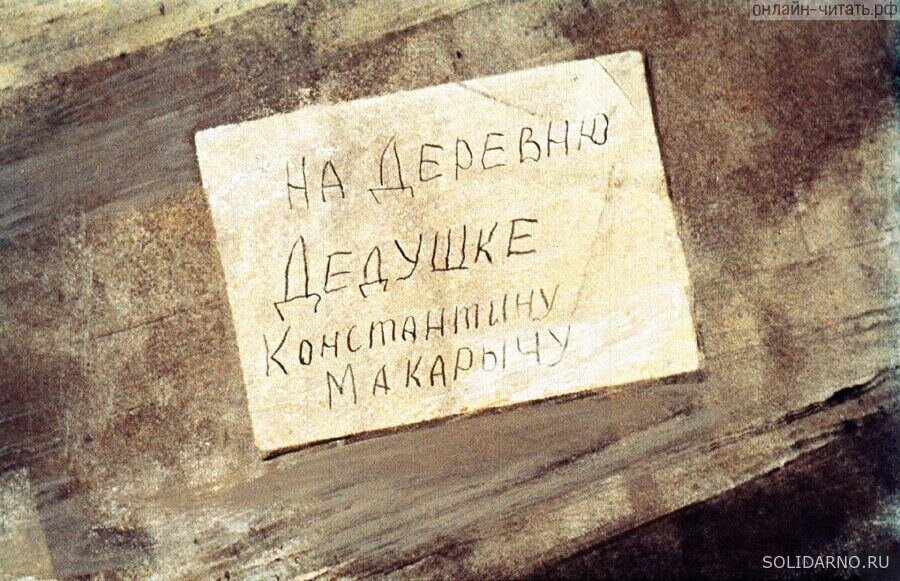 онлайн-читать.рф
НА ДЕРЕВНЮ
ДЕДУШКЕ
КОНСТАНТИНУ
МАКАРЫЧУ
SOLIDARNO.RU